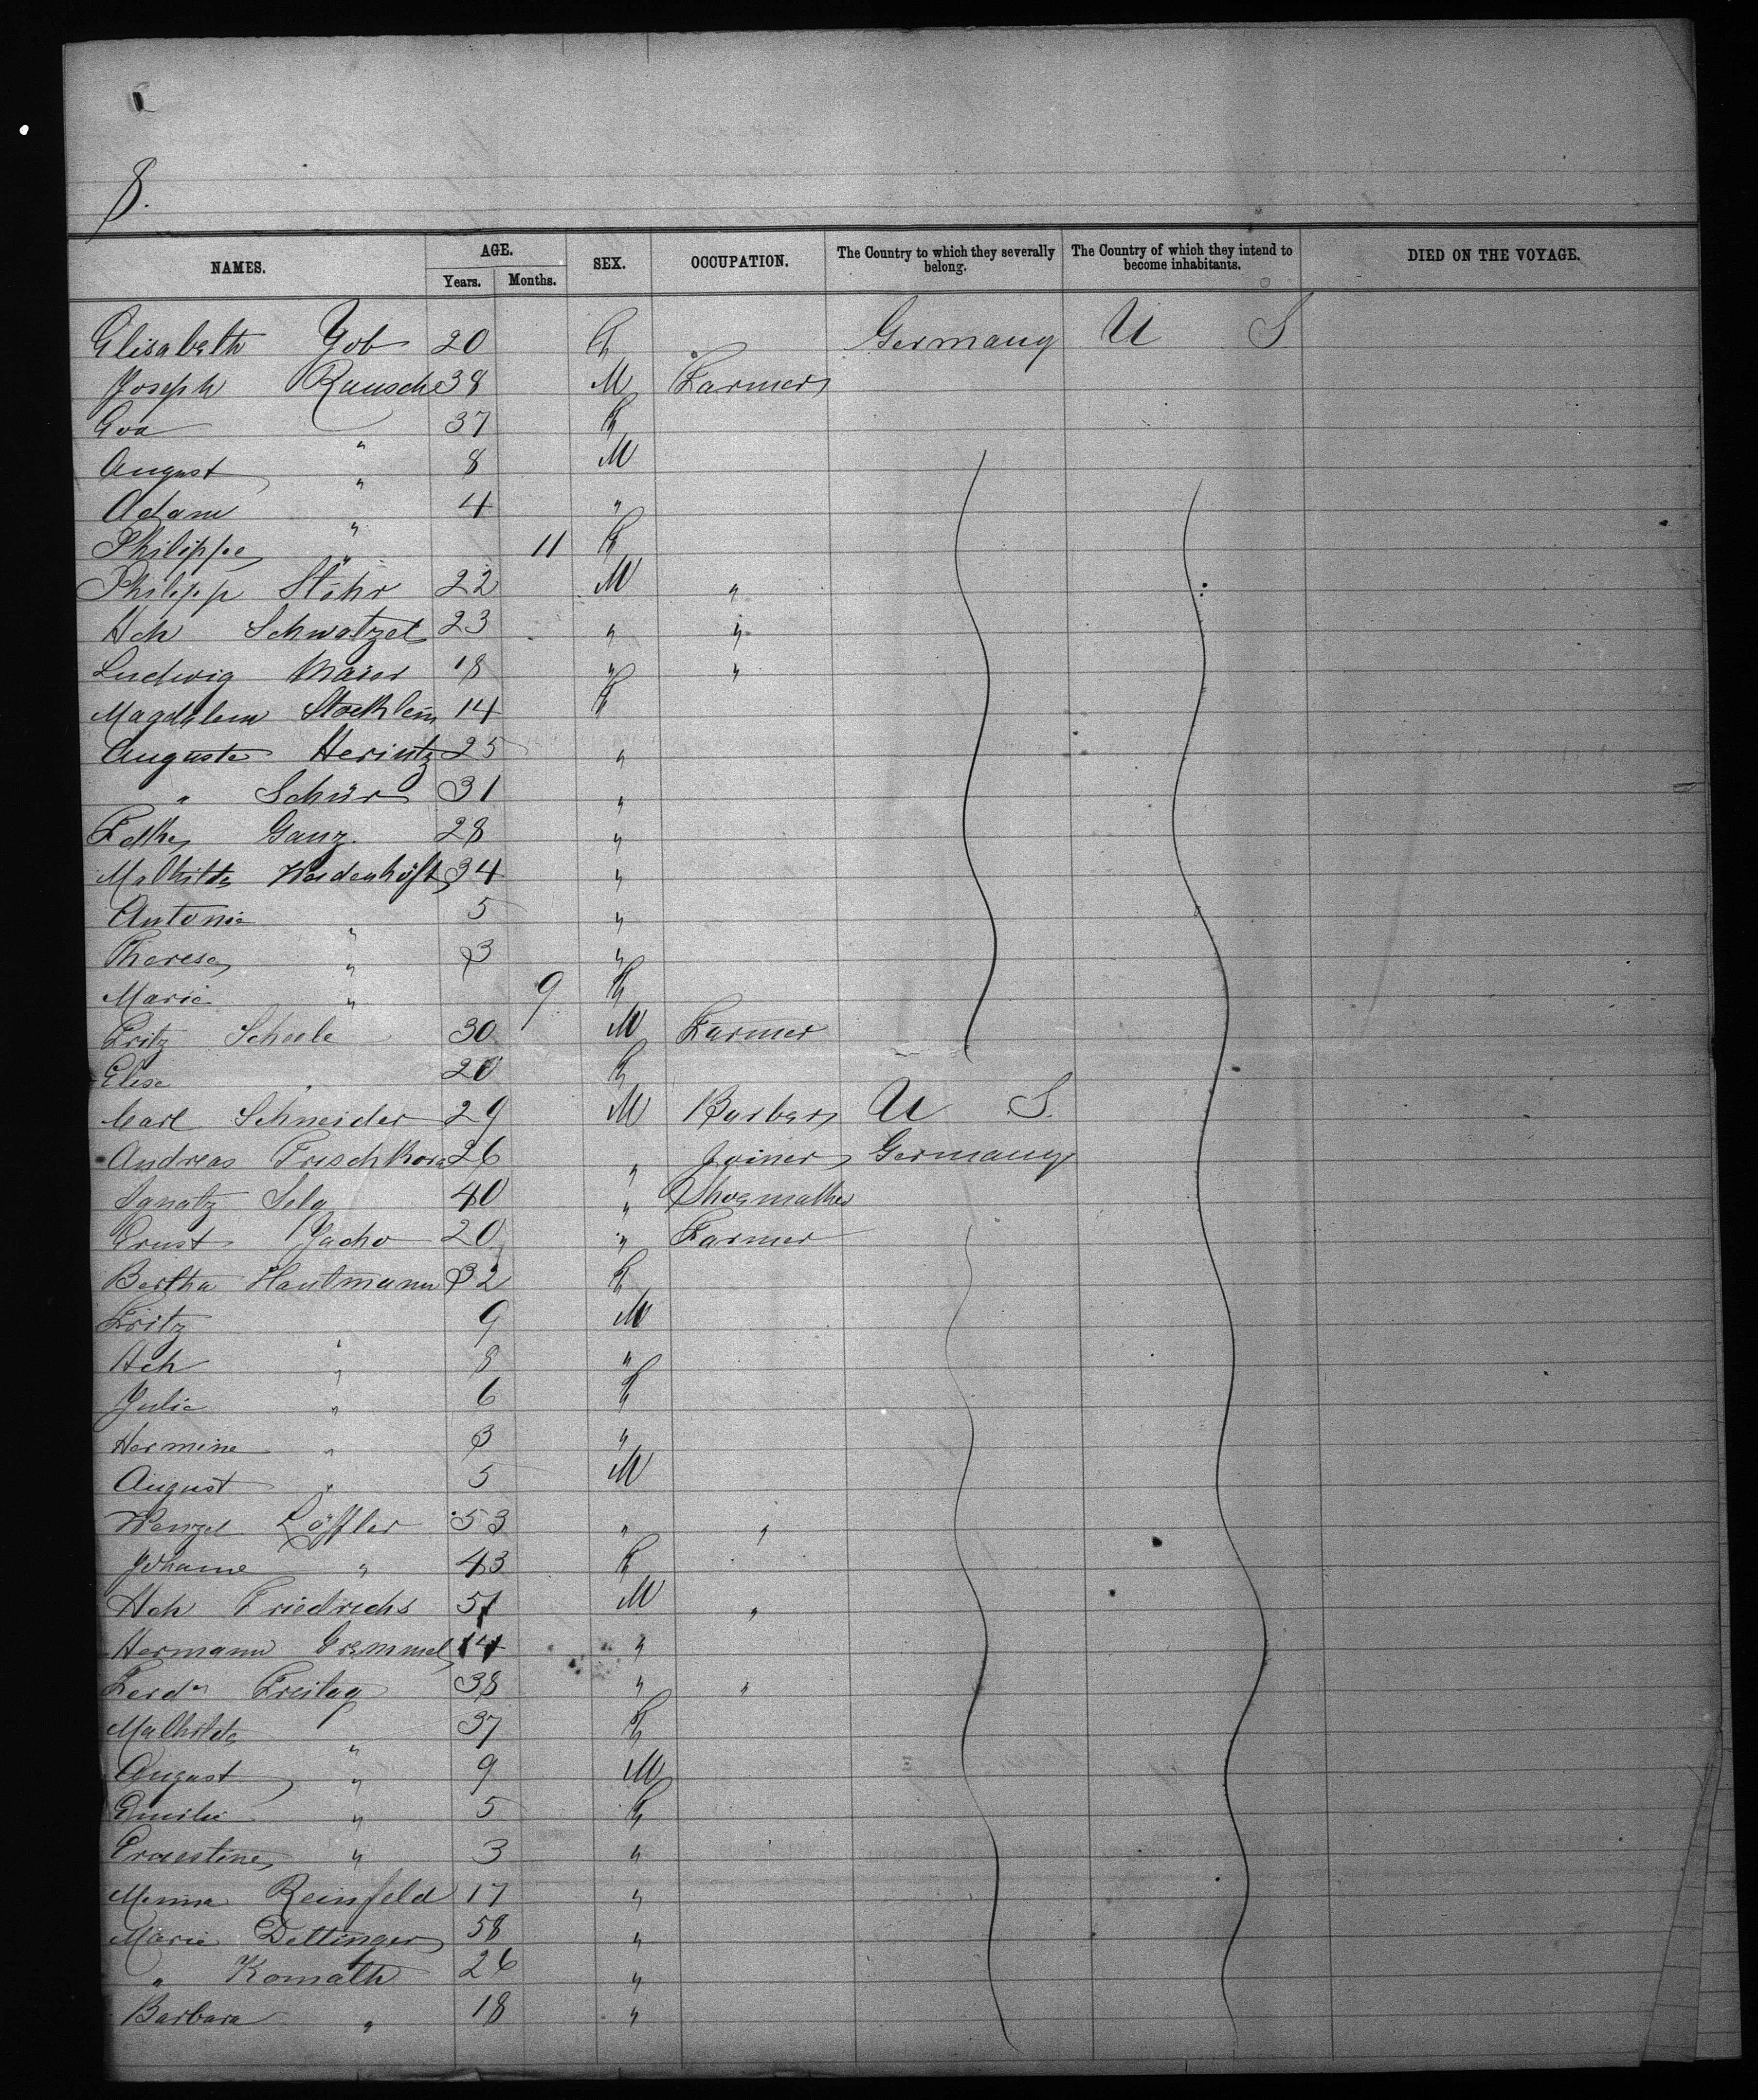 8.
NAMES. AGE. Years. Months. SEX. OCCUPATION. The Country to which they severally belong. The Country of which they intend to become inhabitants. DIED ON THE VOYAGE.
Elisabeth Yob 20 F Germany U S
Joseph Rausch 38 M Farmer
Eva " 37 F
August " 8 M
Adam " 4 "
Philippe " 11 F
Philipp Stöhr 22 M "
Hch Schwatzel 23 " "
Ludwig Maier 18 " "
Magdalena 14 F
Auguste Herintz 25 "
" Schür 31 "
Ganz 28 "
Mathilde 34 "
Antonie " 5 "
Therese " 3 "
Marie " 9 F
Fritz Scheele 30 M Farmer
Elise " 20 F
Carl Schneider 29 M Barber U S
Andreas Frischkorn 26 " Joiner Germany
Ignatz Sela 40 " Shoemaker
Ernst Jacho 20 " Farmer
Bertha Hautmann 32 F
Fritz " 9 M
Hch " 8 "
Julie " 6 F
Hermine " 3 "
August " 5 M
Wenzel Löffler 53 " "
Johanne " 43 F
Hch Friedrichs 51 M "
Hermann Gremmel 14 "
Ferdn Freitag 38 " "
Mathilde " 37 F
August " 9 M
Emilie " 5 F
Ernestine " 3 "
Minna Reinfeld 17 "
Marie Dettinger 58 "
" Komath 26 "
Barbara " 18 "